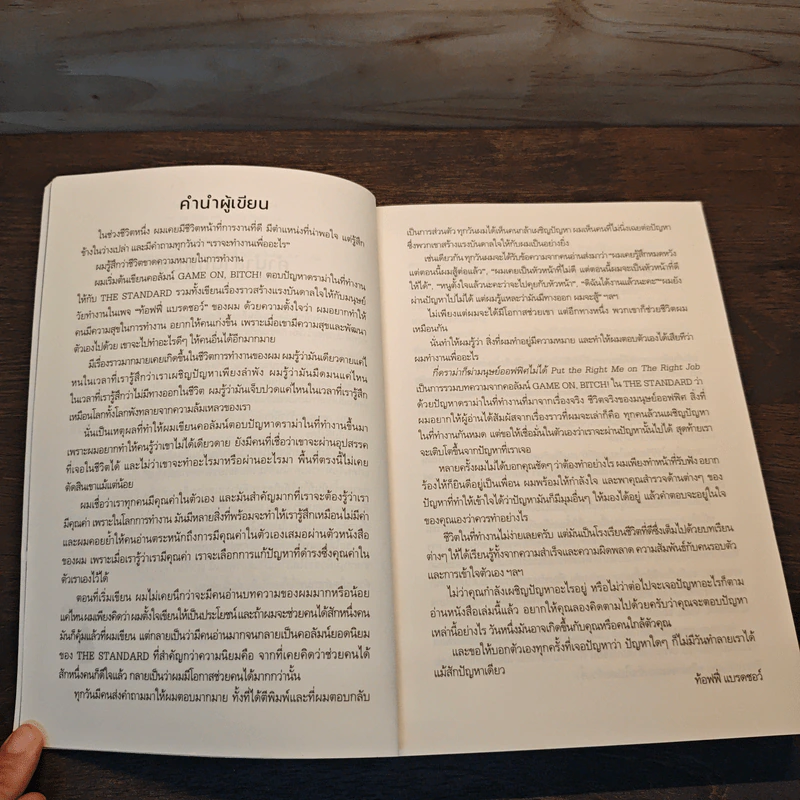 คำนำผู้เขียน
ในช่วงชีวิตหนึ่ง ผมเคยมีชีวิตหน้าที่การงานที่ดี มีตำแหน่งที่น่าพอใจ แต่รู้สึก
ข้างในว่างเปล่า และมีคำถามทุกวันว่า “เราจะทำงานเพื่ออะไร”
ผมรู้สึกว่าชีวิตขาดความหมายในการทำงาน
ผมเริ่มต้นเขียนคอลัมน์ GAME ON, BITCH! ตอบปัญหาดราม่าในที่ทำงาน
ให้กับ THE STANDARD รวมทั้งเขียนเรื่องราวสร้างแรงบันดาลใจให้กับมนุษย์
วัยทำงานในเพจ “ท้อฟฟี่ แบรดชอว์” ของผม ด้วยความตั้งใจว่า ผมอยากทำให้
คนมีความสุขในการทำงาน อยากให้คนเก่งขึ้น เพราะเมื่อเขามีความสุขและพัฒนา
ตัวเองไปด้วย เขาจะไปทำอะไรดีๆ ให้คนอื่นได้อีกมากมาย
มีเรื่องราวมากมายเคยเกิดขึ้นในชีวิตการทำงานของผม ผมรู้ว่ามันเดียวดายแค่
ไหนในเวลาที่เรารู้สึกว่าเราเผชิญปัญหาเพียงลำพัง ผมรู้ว่ามันมืดมนแค่ไหน
ในเวลาที่เรารู้สึกว่าไม่มีทางออกในชีวิต ผมรู้ว่ามันเจ็บปวดแค่ไหนในเวลาที่เรารู้สึก
เหมือนโลกทั้งโลกพังทลายจากความล้มเหลวของเรา
นั่นเป็นเหตุผลที่ทำให้ผมเขียนคอลัมน์ตอบปัญหาดราม่าในที่ทำงานขึ้นมา
เพราะผมอยากทำให้คนรู้ว่าเขาไม่ได้เดียวดาย ยังมีคนที่เชื่อว่าเขาจะผ่านอุปสรรค
ที่เจอในชีวิตได้ และไม่ว่าเขาจะทำอะไรมาหรือผ่านอะไรมา พื้นที่ตรงนี้ไม่เคย
ตัดสินเขาแม้แต่น้อย
ผมเชื่อว่าเราทุกคนมีคุณค่าในตัวเอง และมันสำคัญมากที่เราจะต้องรู้ว่าเรา
มีคุณค่า เพราะในโลกการทำงาน มันมีหลายสิ่งที่พร้อมจะทำให้เรารู้สึกเหมือนไม่มีค่า
และผมคอยย้ำคนอ่านตระหนักถึงการมีคุณค่าในตัวเองเสมอผ่านตัวหนังสือ
ของผม เพราะเมื่อเรารู้ว่าเรามีคุณค่า เราจะเลือกการแก้ปัญหาที่ดำรงซึ่งคุณค่าใน
ตัวเราเอาไว้ได้
ตอนที่เริ่มเขียน ผมไม่เคยนึกว่าจะมีคนอ่านบทความของผมมากหรือน้อย
แค่ไหน ผมเพียงคิดว่า ผมตั้งใจเขียนให้เป็นประโยชน์ และถ้าผมจะช่วยคนได้สักหนึ่งคน
มันก็คุ้มแล้วที่ผมเขียน แต่กลายเป็นว่ามีคนอ่านมากจนกลายเป็นคอลัมน์ยอดนิยม
ของ THE STANDARD ที่สำคัญกว่าความนิยมคือ จากที่เคยคิดว่าช่วยคนได้
สักหนึ่งคนก็ดีใจแล้ว กลายเป็นว่าผมมีโอกาสช่วยคนได้มากกว่านั้น
ทุกวันมีคนส่งคำถามมาให้ผมตอบมากมาย ทั้งที่ได้ตีพิมพ์และที่ผมตอบกลับ
เป็นการส่วนตัว ทุกวันผมได้เห็นคนกล้าเผชิญปัญหา ผมเห็นคนที่ไม่นิ่งเฉยต่อปัญหา
ซึ่งพวกเขาสร้างแรงบันดาลใจให้กับผมเป็นอย่างยิ่ง
เช่นเดียวกัน ทุกวันผมจะได้รับข้อความจากคนอ่านส่งมาว่า “ผมเคยรู้สึกหมดหวัง
แต่ตอนนี้ผมสู้ต่อแล้ว”, “ผมเคยเป็นหัวหน้าที่ไม่ดี แต่ตอนนี้ผมจะเป็นหัวหน้าที่ดี
ให้ได้”, “หนูตั้งใจแล้วนะคะว่าจะไปคุยกับหัวหน้า” “ดิฉันได้งานแล้วนะคะ” “ผมยัง
ผ่านปัญหาไปไม่ได้ แต่ผมรู้แหละว่ามันมีทางออก ผมจะสู้” ฯลฯ
ไม่เพียงแต่ผมจะได้มีโอกาสช่วยเขา แต่อีกทางหนึ่ง พวกเขาก็ช่วยชีวิตผม
เหมือนกัน
นั่นทำให้ผมรู้ว่า สิ่งที่ผมทำอยู่มีความหมาย และทำให้ผมตอบตัวเองได้เสียทีว่า
ผมทำงานเพื่ออะไร
กี่ดราม่าก็ฆ่ามนุษย์ออฟฟิศไม่ได้ Put the Right Me on The Right Job
เป็นการรวมบทความจากคอลัมน์ GAME ON, BITCH! ใน THE STANDARD ว่า
ด้วยปัญหาดราม่าในที่ทำงานที่มาจากเรื่องจริง ชีวิตจริงของมนุษย์ออฟฟิศ สิ่งที่
ผมอยากให้ผู้อ่านได้สัมผัสจากเรื่องราวที่ผมจะเล่าก็คือ ทุกคนล้วนเผชิญปัญหา
ในที่ทำงานกันหมด แต่ขอให้เชื่อมั่นในตัวเองว่าเราจะผ่านปัญหานั้นไปได้ สุดท้ายเรา
จะเติบโตขึ้นจากปัญหาที่เราเจอ
หลายครั้งผมไม่ได้บอกคุณชัดๆ ว่าต้องทำอย่างไร ผมเพียงทำหน้าที่รับฟัง อยาก
ร้องไห้ก็ยินดีอยู่เป็นเพื่อน ผมพร้อมให้กำลังใจ และพาคุณสำรวจด้านต่างๆ ของ
ปัญหาที่ทำให้เข้าใจได้ว่าปัญหามันก็มีมุมอื่นๆ ให้มองได้อยู่ แล้วคำตอบจะอยู่ในใจ
ของคุณเองว่าควรทำอย่างไร
ชีวิตในที่ทำงานไม่ง่ายเลยครับ แต่มันเป็นโรงเรียนชีวิตที่ดีซึ่งเต็มไปด้วยบทเรียน
ต่างๆ ให้ได้เรียนรู้ทั้งจากความสำเร็จและความผิดพลาด ความสัมพันธ์กับคนรอบตัว
และการเข้าใจตัวเอง ฯลฯ
ไม่ว่าคุณกำลังเผชิญปัญหาอะไรอยู่ หรือไม่ว่าต่อไปจะเจอปัญหาอะไรก็ตาม
อ่านหนังสือเล่มนี้แล้ว อยากให้คุณลองคิดตามไปด้วยครับว่าคุณจะตอบปัญหา
เหล่านี้อย่างไร วันหนึ่งมันอาจเกิดขึ้นกับคุณหรือคนใกล้ตัวคุณ
และขอให้บอกตัวเองทุกครั้งที่เจอปัญหาว่า ปัญหาใดๆ ก็ไม่มีวันทำลายเราได้
แม้สักปัญหาเดียว
ท้อฟฟี่ แบรดชอว์